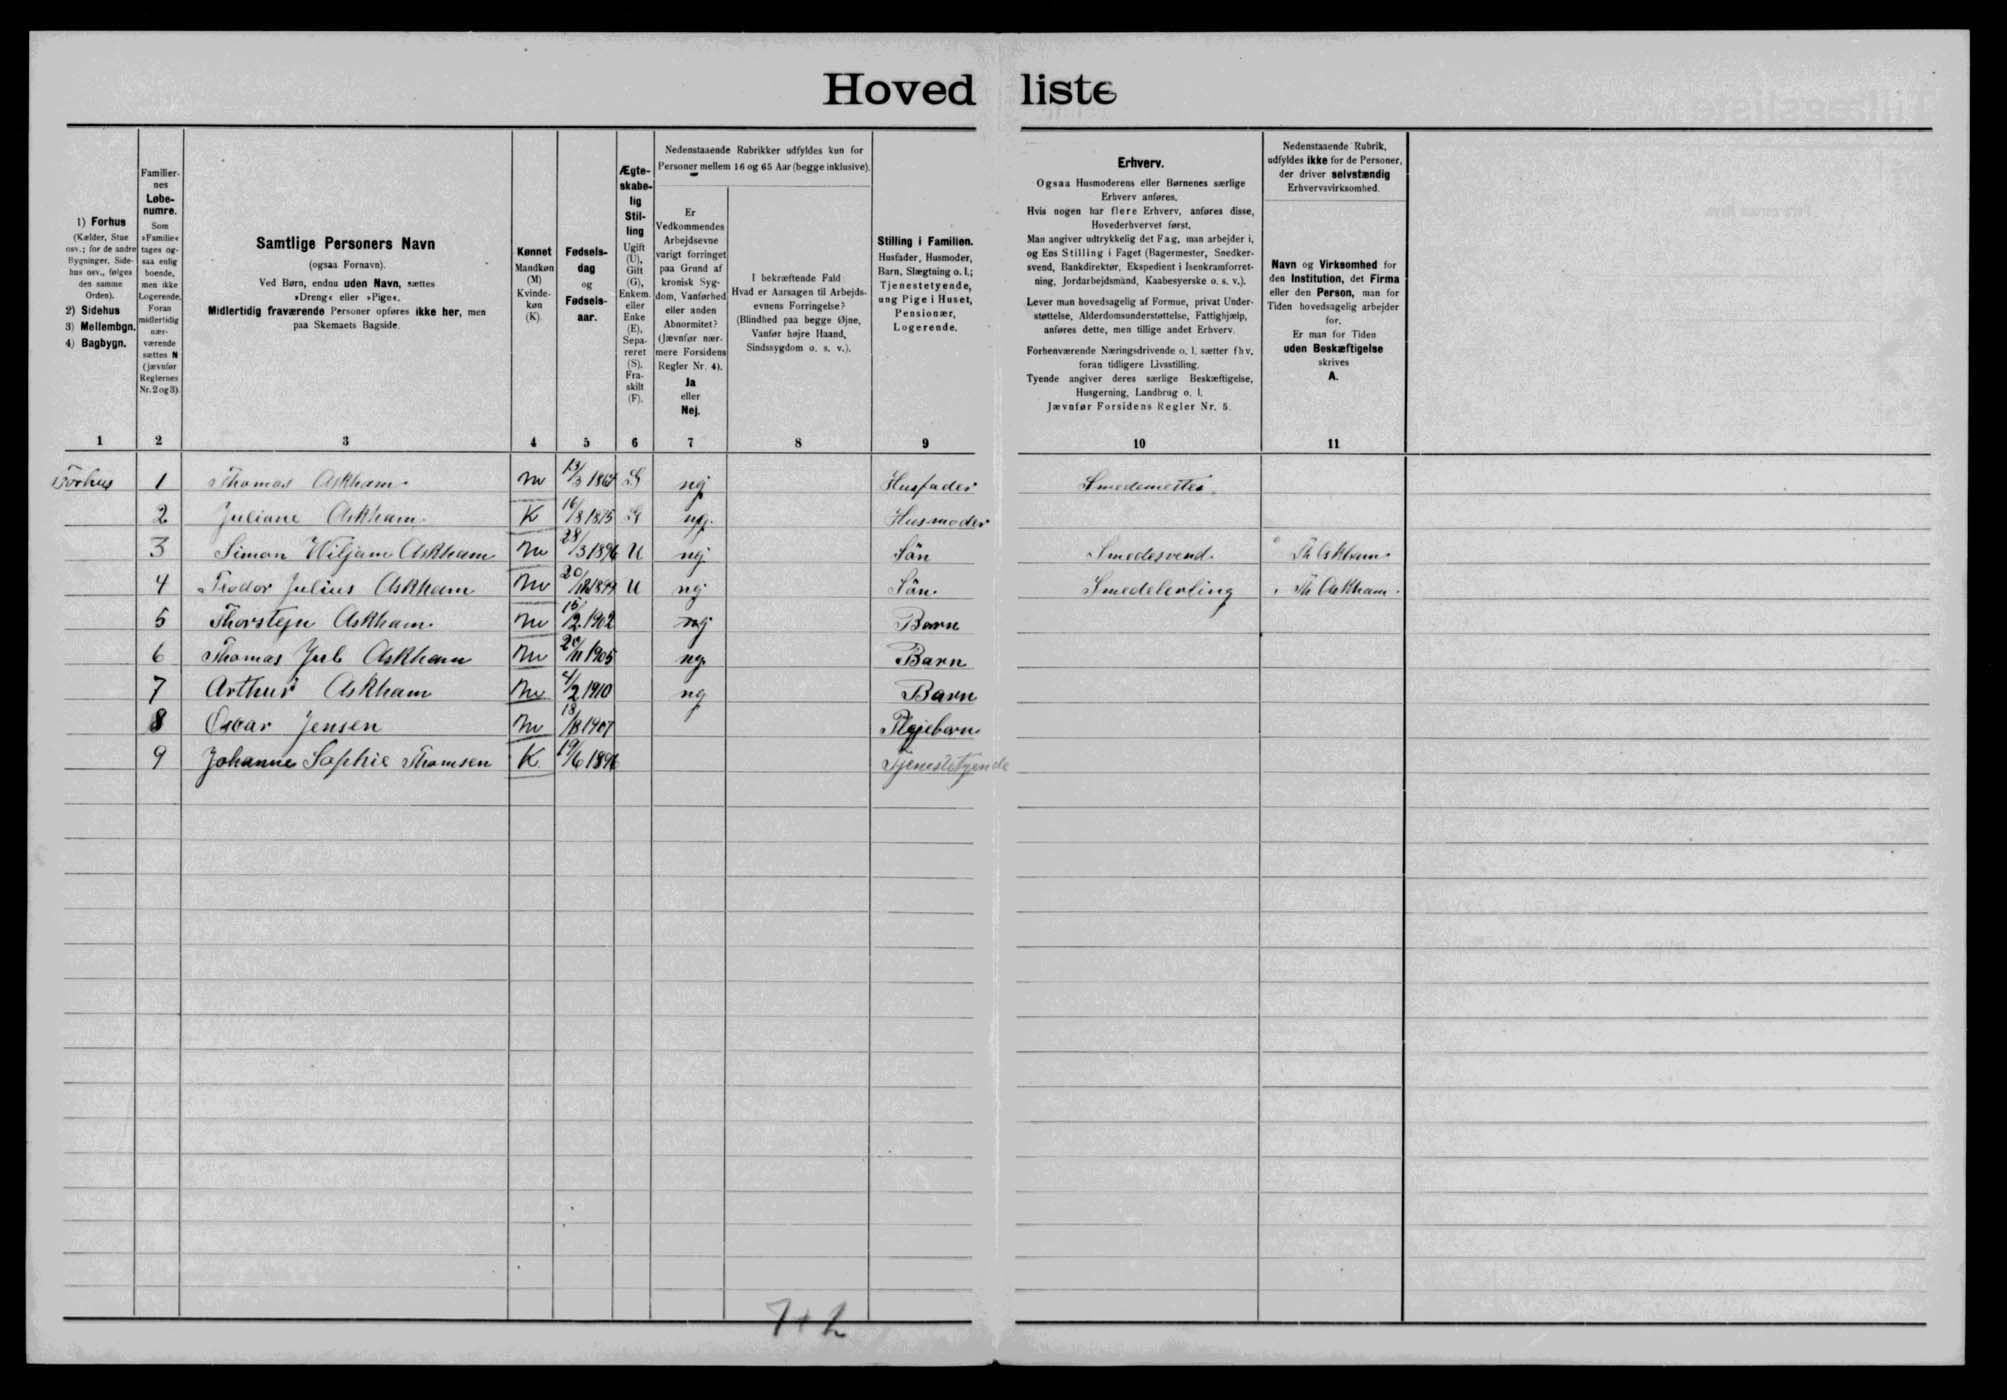 Hovedliste
1) Forhus
(Kælder, Stue
osv.; for de andre
Bygninger, Side-
hus osv., følges
den samme
Orden).
2) Sidehus
3) Mellembgn.
4) Bagbygn.
Familier-
nes
Løbe-
numre.
Som
»Familie«
tages og-
saa enlig
boende,
men ikke
Logerende.
Foran
midlertidig
nær-
værende
sættes N
(jævnfør
Reglernes
Nr. 2 og 3).
Samtlige Personers Navn
(ogsaa Fornavn).
Ved Børn, endnu uden Navn, sættes
»Dreng« eller »Pige«.
Midlertidig fraværende Personer opføres ikke her, men
paa Skemaets Bagside.
Kønnet
Mandkøn
(M)
Kvinde-
køn
(K).
Fødsels-
dag
og
Fødsels-
aar.
Ægte-
skabe-
lig
Stil-
ling
Ugift
(U),
Gift
(G),
Enkem.
eller
Enke
(E),
Sepa-
reret
(S),
Fra-
skilt
(F).
Nedenstaaende Rubrikker udfyldes kun for
Personer mellem 16 og 65 Aar (begge inklusive).
Er
Vedkommendes
Arbejdsevne
varigt forringet
paa Grund af
kronisk Syg-
dom, Vanførhed
eller anden
Abnormitet?
(Jævnfør nær-
mere Forsidens
Regler Nr. 4).
Ja
eller
Nej.
I bekræftende Fald:
Hvad er Aarsagen til Arbejds-
evnens Forringelse?
(Blindhed paa begge Øjne,
Vanfør højre Haand,
Sindssygdom o. s. v.).
Stilling i Familien.
Husfader, Husmoder,
Barn, Slægtning o. l.;
Tjenestetyende,
ung Pige i Huset,
Pensionær,
Logerende.
Erhverv.
Ogsaa Husmoderens eller Børnenes særlige
Erhverv anføres.
Hvis nogen har flere Erhverv, anføres disse,
Hovederhvervet først.
Man angiver udtrykkelig det Fag, man arbejder i,
og Ens Stilling i Faget (Bagermester, Snedker-
svend, Bankdirektør, Ekspedient i Isenkramforret-
ning, Jordarbejdsmand, Kaabesyerske o. s. v.).
Lever man hovedsagelig af Formue, privat Under-
støttelse, Alderdomsunderstøttelse, Fattighjælp,
anføres dette, men tillige andet Erhverv.
Forhenværende Næringsdrivende o. l. sætter fhv.
foran tidligere Livsstilling.
Tyende angiver deres særlige Beskæftigelse,
Husgerning, Landbrug o. l.
Jævnfør Forsidens Regler Nr. 5.
Nedenstaaende Rubrik,
udfyldes ikke for de Personer,
der driver selvstændig
Erhvervsvirksomhed.
Navn og Virksomhed for
den Institution, det Firma
eller den Person, man for
Tiden hovedsagelig arbejder
for.
Er man for Tiden
uden Beskæftigelse
skrives
A.
1 2 3 4 5 6 7 8 9 10 11
Forhus 1 Thomas Askham. M 13/3 G nej Husfader Smedemester.
2 Juliane Askham. K 16/8 1875 G nej. Husmoder
3 Simon Viljam Askham M 28/3 1896 U nej Sön Smedesvend. Th Askham.
4 Teodor Julius Askham M U nej Sön. Smedelerling Th Askham.
5 Thorstejn Askham. M 15/12 1902 nej Barn
6 Thomas Juel Askham M 20/11 1905 nej. Barn
7 Arthur Askham M 4/2 1910 nej Barn
8 Oscar Jensen M Plejebarn
9 Johanne Sophie Thomsen K 19/6 1896 Tjenestetyende
7+2